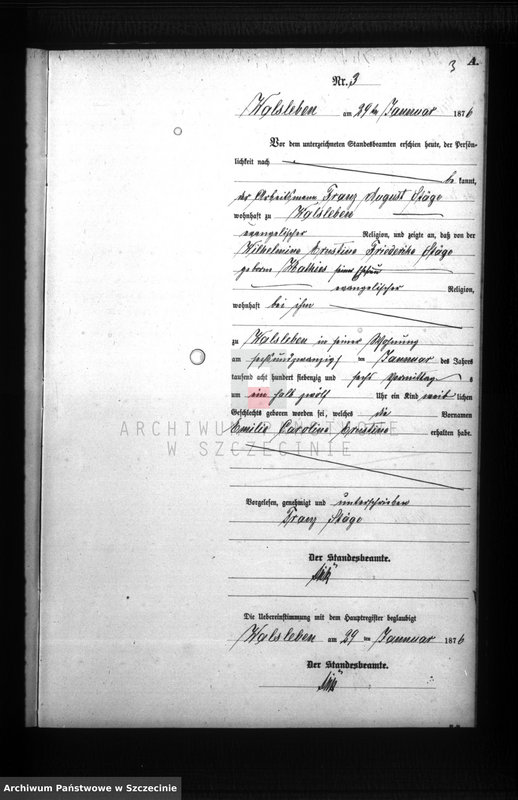 3 A.
Nr. 3
Walsleben am 29ten Januar 1876
Vor dem unterzeichneten Standesbeamten erschien heute, der Persön-
lichkeit nach
be kannt,
der Arbeitsmann Franz August Stäge
wohnhaft zu Walsleben
evangelischer Religion, und zeigte an, daß von der
Wilhelmine Ernstine Friederike Stäge
geborne Mathies seiner Ehefrau
evangelischer Religion,
wohnhaft bei ihm
zu Walsleben in seiner Wohnung
am sechsundzwanzigsten Januar des Jahres
tausend acht hundert siebenzig und sechs Vormittags
um ein halb zwölf Uhr ein Kind weiblichen
Geschlechts geboren worden sei, welches die Vornamen
Emilie Caroline Ernstine erhalten habe.
ARCHIWUM PAŃSTWOWE
W SZCZECINIE
Vorgelesen, genehmigt und unterschrieben
Franz Stäge
Der Standesbeamte.
Die Uebereinstimmung mit dem Hauptregister beglaubigt
Walsleben am 29 ten Januar 1876
Der Standesbeamte.
Archiwum Państwowe w Szczecinie